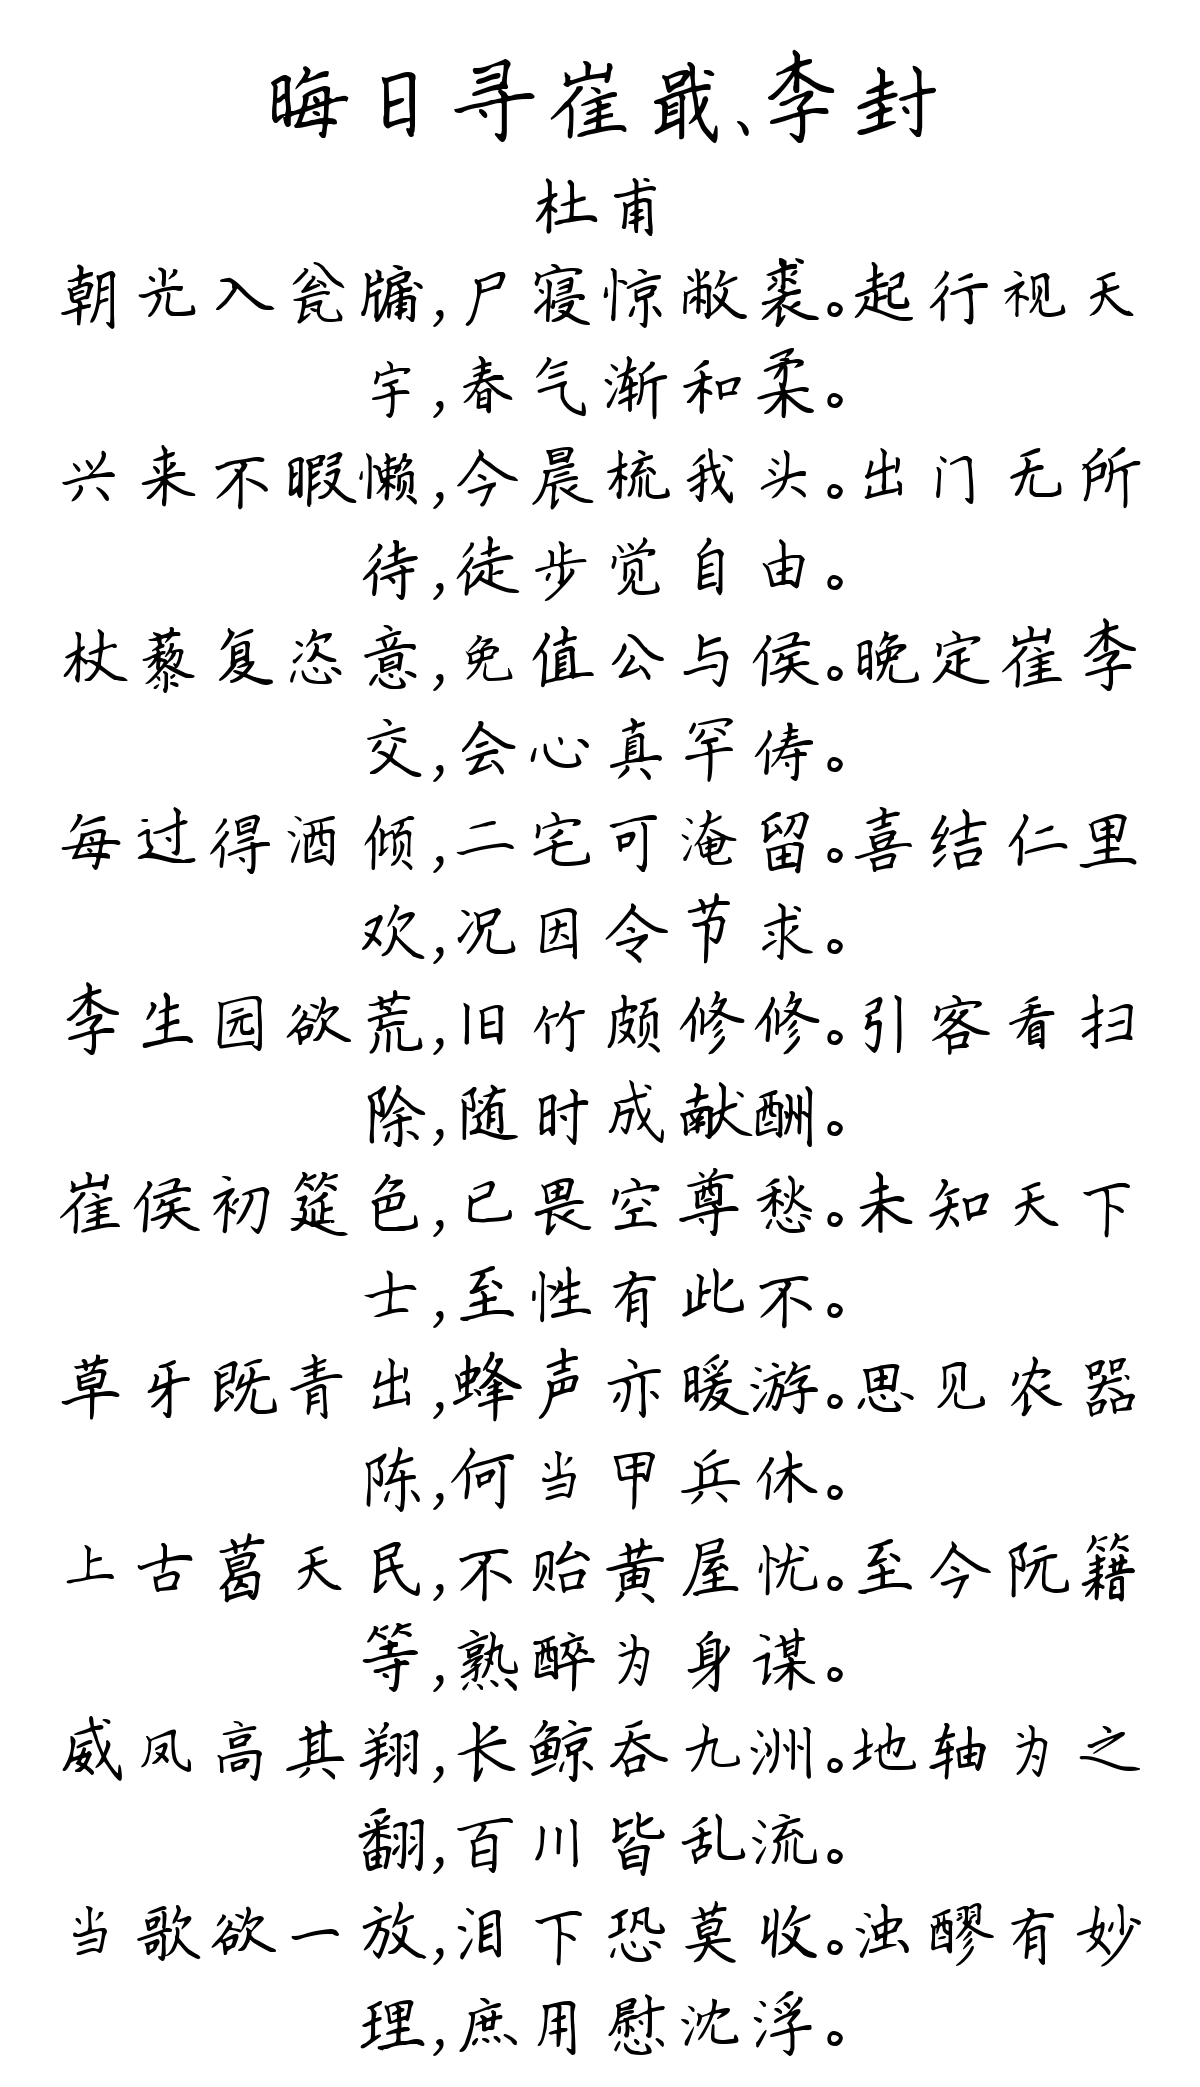 晦日寻崔戢、李封
杜甫
朝光入瓮牖,尸寝惊敝裘。起行视天
宇,春气渐和柔。
兴来不暇懒,今晨梳我头。出门无所
待,徒步觉自由。
杖藜复恣意,免值公与侯。晚定崔李
交,会心真罕俦。
每过得酒倾,二宅可淹留。喜结仁里
欢,况因令节求。
李生园欲荒,旧竹颇修修。引客看扫
除,随时成献酬。
崔侯初筵色,已畏空尊愁。未知天下
士,至性有此不。
草牙既青出,蜂声亦暖游。思见农器
陈,何当甲兵休。
上古葛天民,不贻黄屋忧。至今阮籍
等,熟醉为身谋。
威凤高其翔,长鲸吞九洲。地轴为之
翻,百川皆乱流。
当歌欲一放,泪下恐莫收。浊醪有妙
理,庶用慰沈浮。